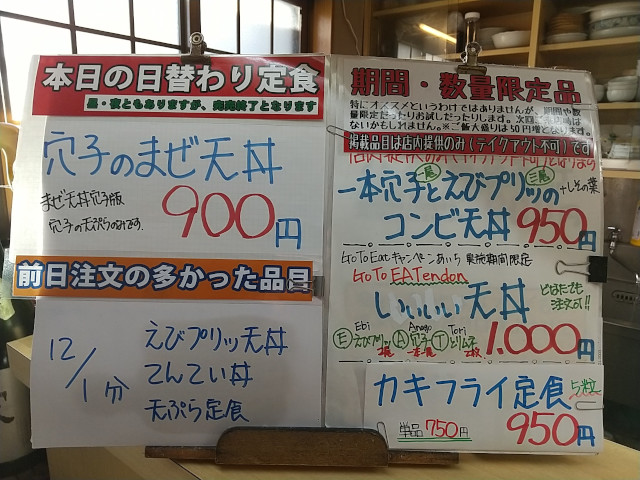 本日の日替わり定食
昼・夜ともありますが、完売終了となります
穴子のまぜ天丼
まぜ天丼穴子版
穴子の天ぷらのみです。
900円
前日注文の多かった品目
12/1分
えびプリッ天丼
てんてい丼
天ぷら定食
期間・数量限定品
特にオススメというわけではありませんが、期間や数
量限定だったりお試しだったりします。次回
ないかもしれません。※ご飯大盛りは50円増となります。
掲載品目は店内提供のみ(テイクアウト不可)です
一本穴子とえびプリッの
一尾
三尾
+しその葉
コンビ天丼 950円
GoToEatキャンペーンあいち 実施期間限定
GoTo EATendon
いいいい天丼
どなたでも
注文可!!
Ebi
Anago
Tori
Eえびプリッ A穴子 Tとりムネ
2尾
一本
2枚
1.000円
カキフライ定食
5粒
単品750円
950円